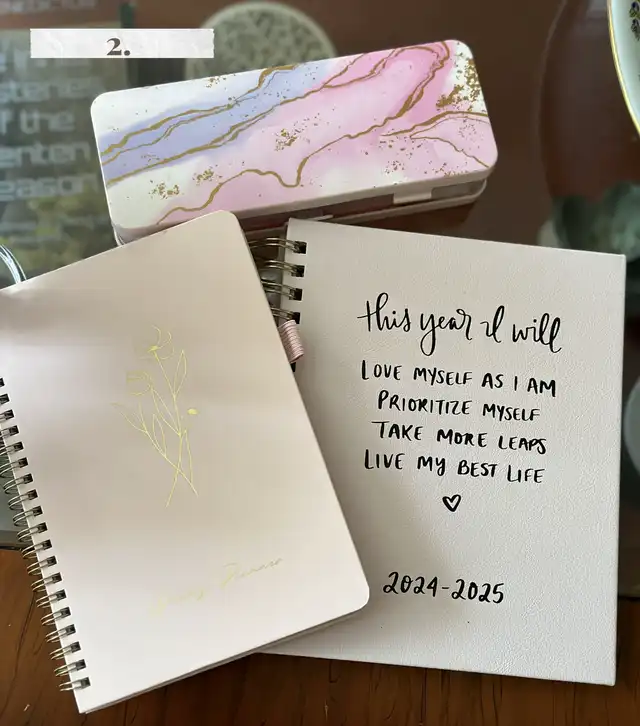 2.
this year I will
LOVE MYSELF AS I AM
PRIORITIZE MYSELF
TAKE MORE LEAPS
LIVE MY BEST LIFE
2024-2025